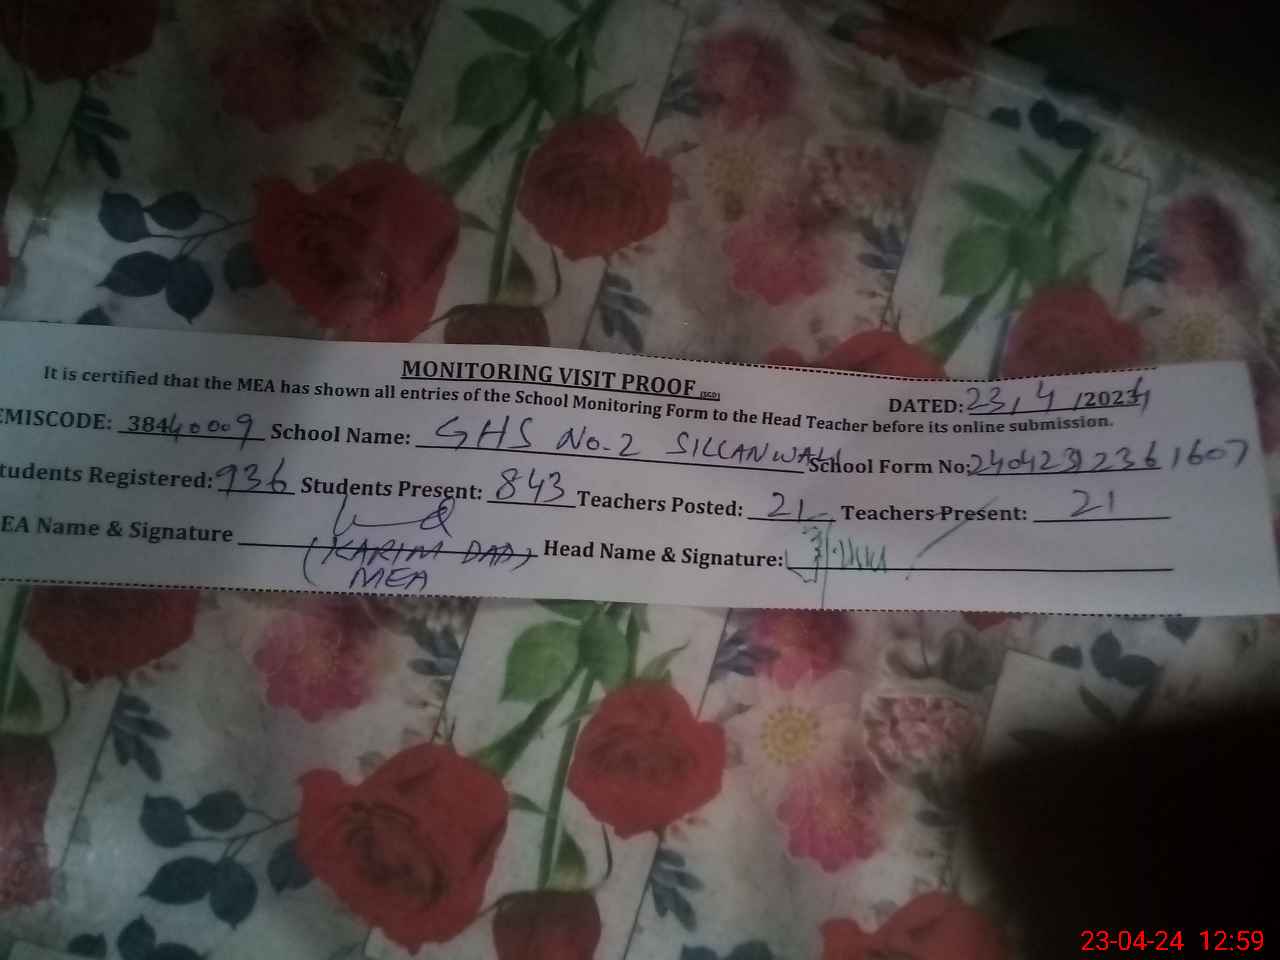 MONITORING VISIT PROOF (SGD)
DATED: 23/4/2024
It is certified that the MEA has shown all entries of the School Monitoring Form to the Head Teacher before its online submission.
EMISCODE: 38440009 School Name: GHS No-2 SILLANWALI School Form No: 2404231236 1607
tudents Registered: 936 Students Present: 843 Teachers Posted: 21 Teachers Present: 21
EA Name & Signature (KARIM DAD) Head Name & Signature:
MEA
23-04-24 12:59